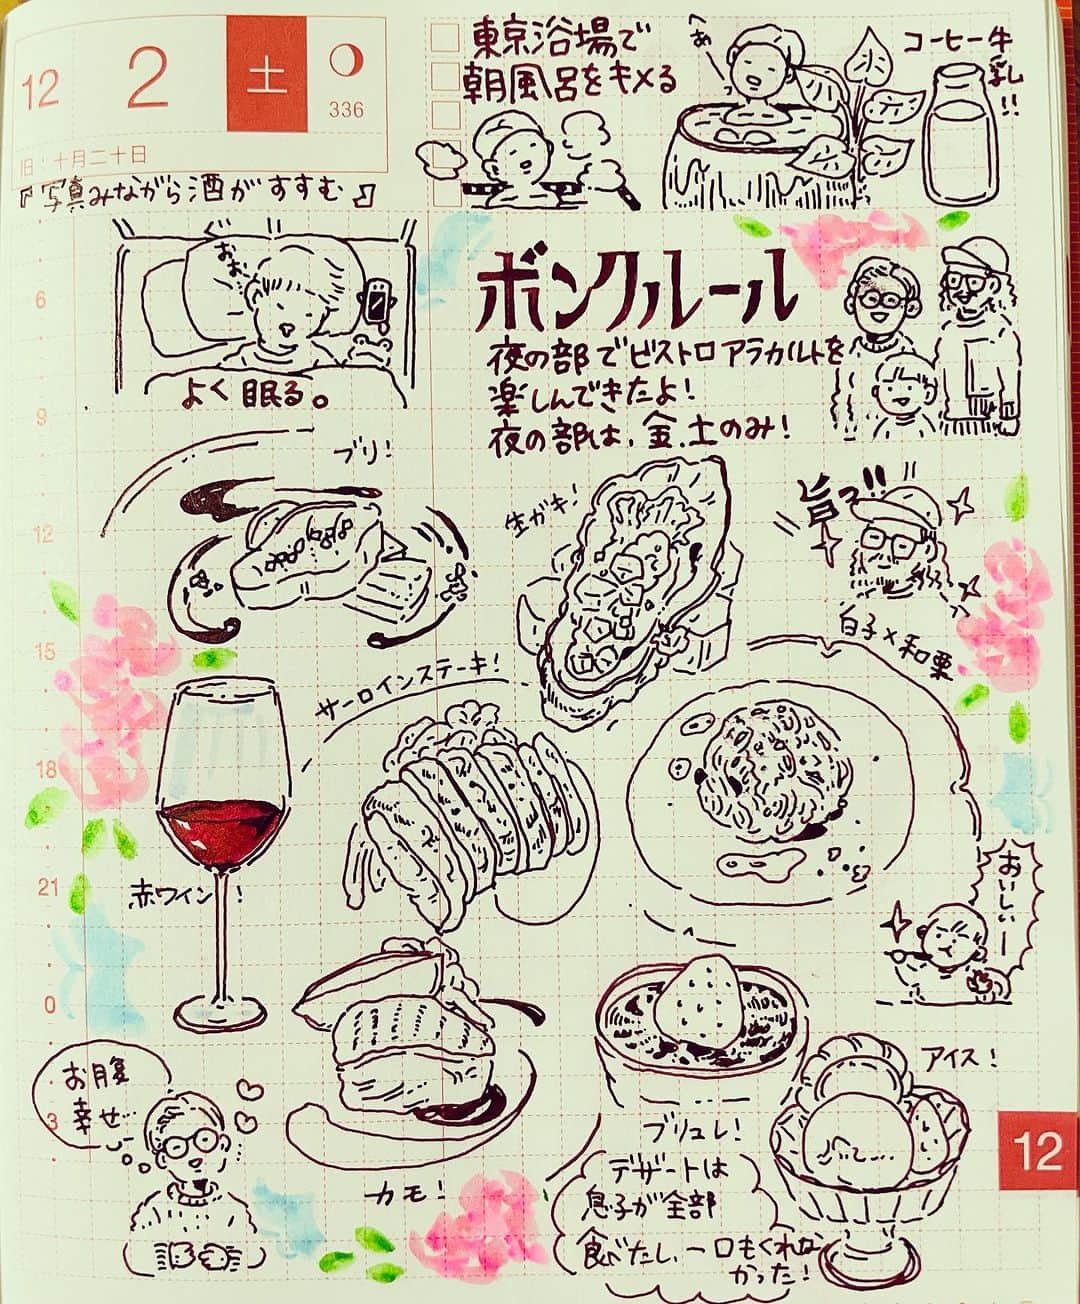 12
2
土
336
旧:十月二十日
『写真みながら酒がすすむ』
東京浴場で
朝風呂をキメる
あ〜
コーヒー牛乳!!
6
9
12
15
18
21
0
3
よく眠る。
ボンクルール
夜の部でビストロアラカルトを
楽しんできたよ!
夜の部は、金、土のみ!
ブリ!
生ガキ!
旨っ!!
白子×和栗
サーロインステーキ!
赤ワイン!
おいしぃー
お腹
幸せ…
カモ!
ブリュレ!
アイス!
デザートは
息子が全部
食べたし、一口もくれな
かった!
12